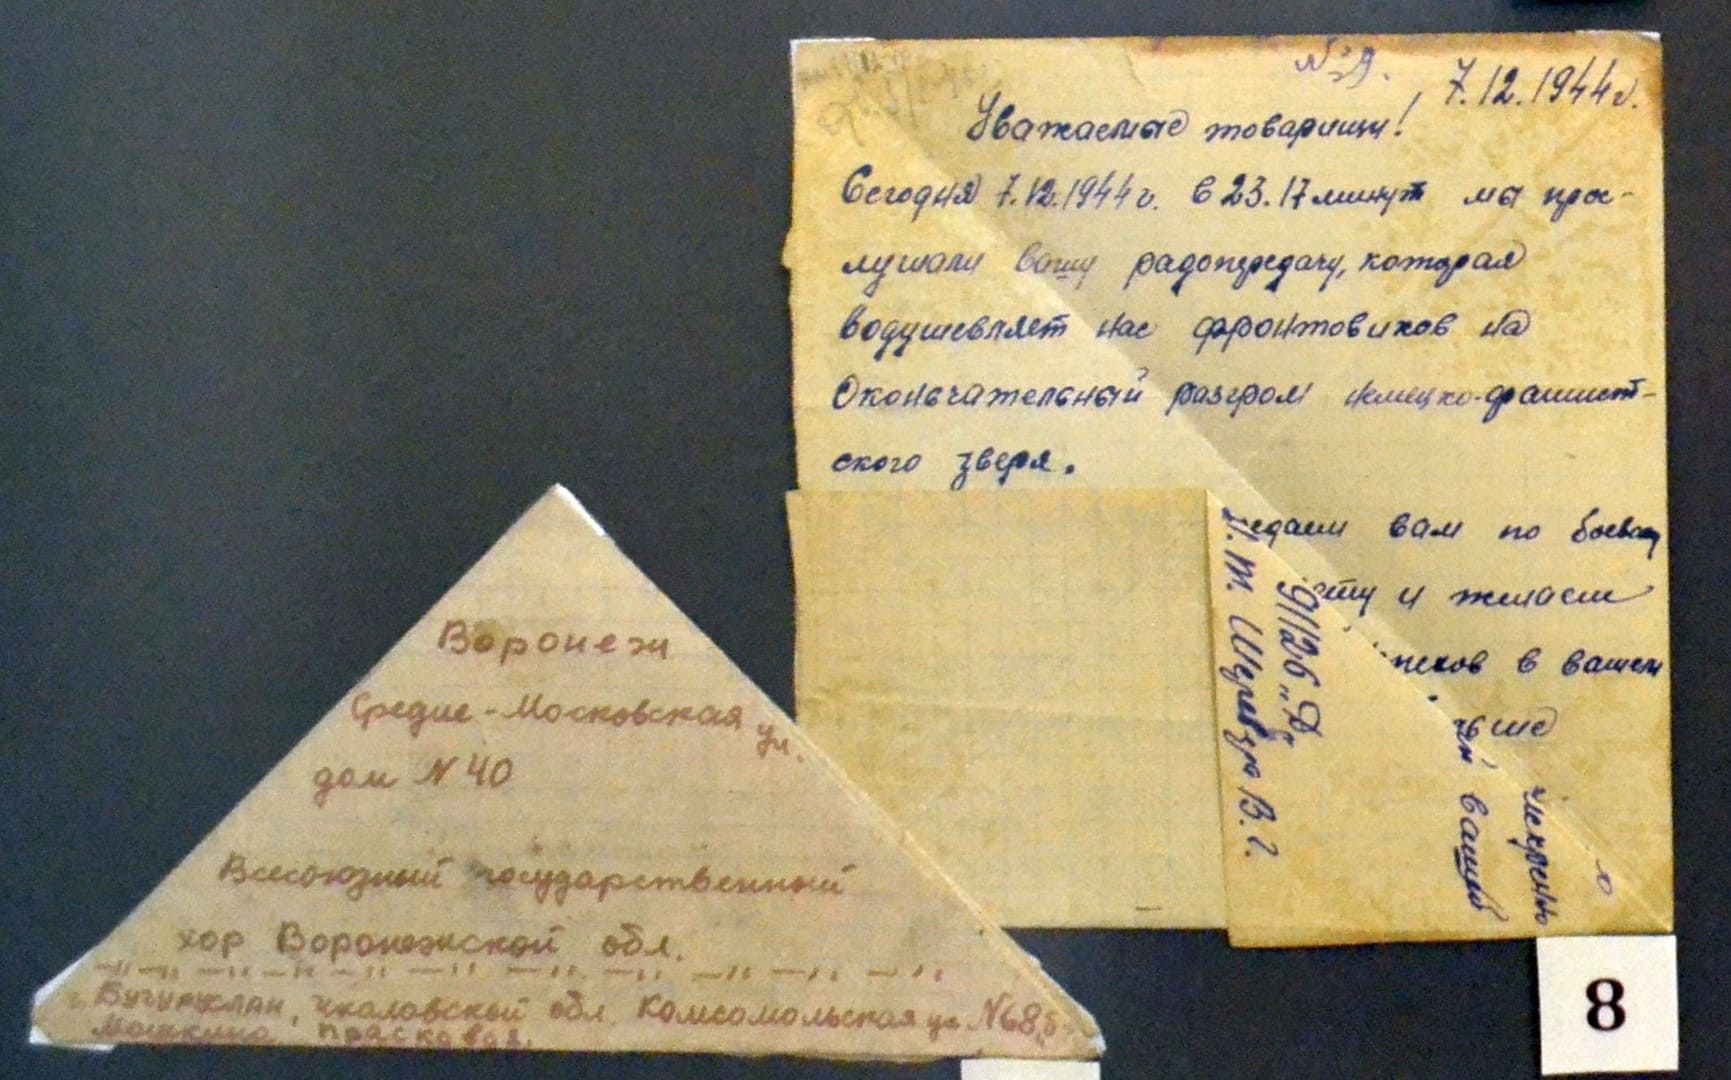 7.12.1944г.
Уважаемые товарищи!
Сегодня 7.12.1944г. в 23.17 минут мы прос-
лушали вашу радопередачу, которая
водушевляет нас фронтовиков на
Окончательный разгром немецко-фашист-
ского зверя.
едаем вам по боевому
ету и желаем
пехов в вашем
ьше
искренно
вашей
91126 „Д"
В.
Воронеж
Средне-Московская ул.
дом N 40
Всесоюзный государственный
хор Воронежской обл.
г. Бугуруслан, Чкаловской обл. Комсомольская ул. N68
Машкина Прасковая.
8